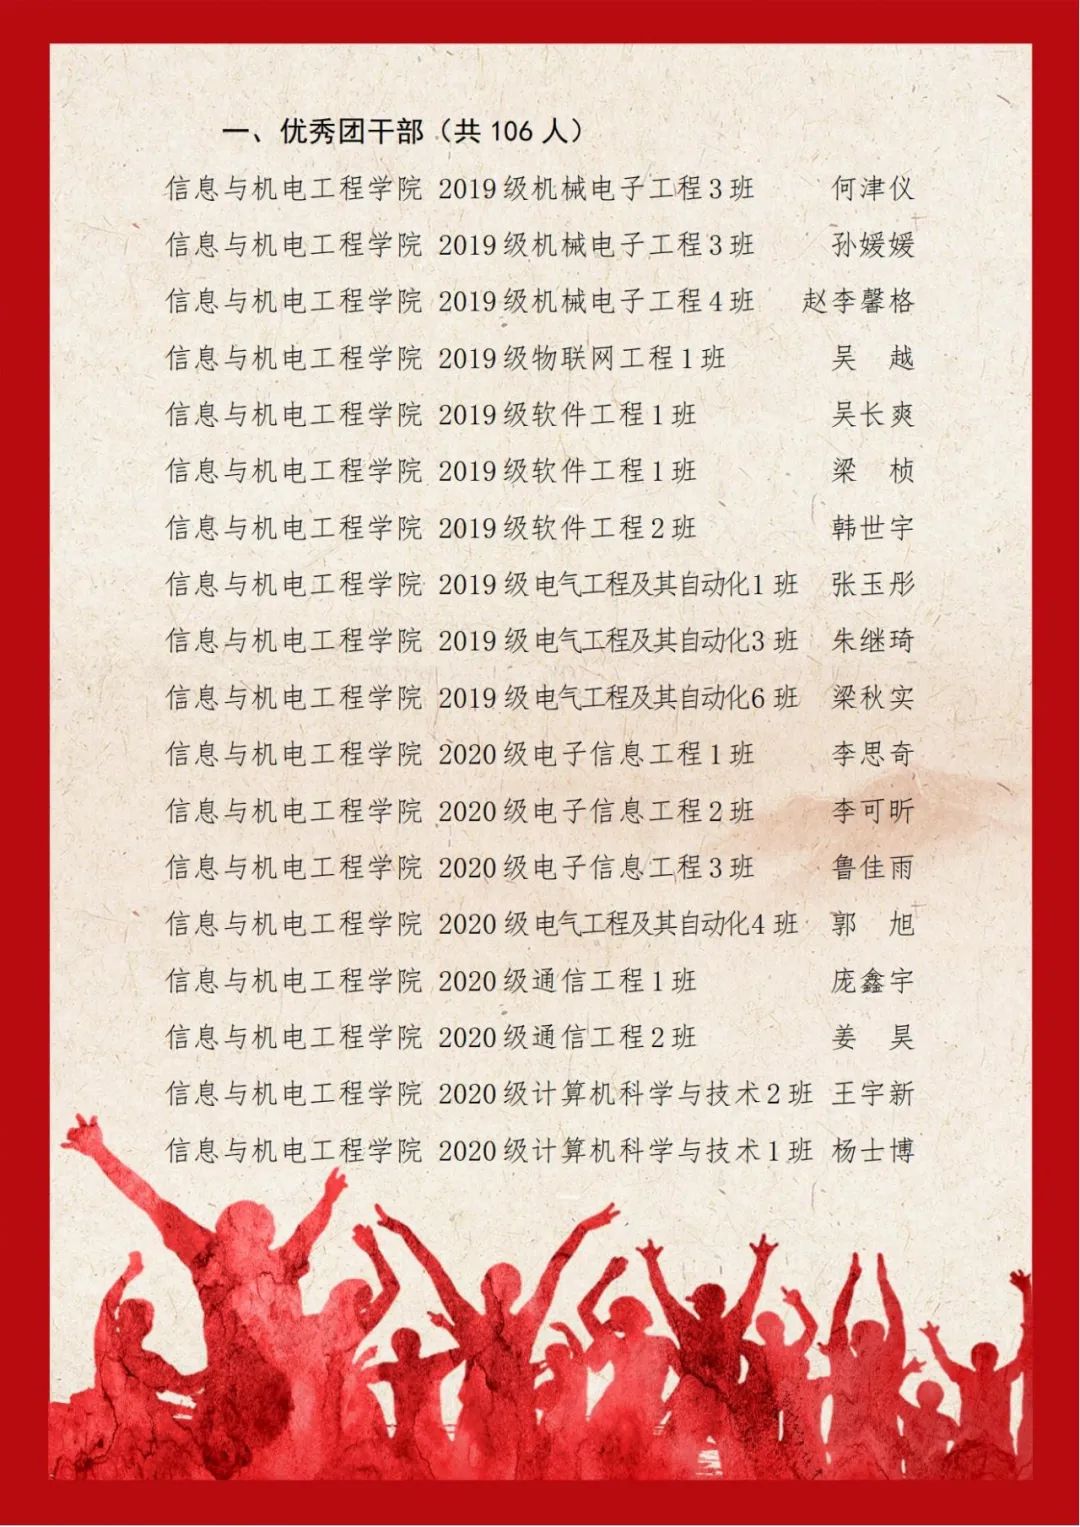 一、优秀团干部（共 106 人）
信息与机电工程学院 2019级机械电子工程3班 何津仪
信息与机电工程学院 2019级机械电子工程3班 孙媛媛
信息与机电工程学院 2019级机械电子工程4班 赵李馨格
信息与机电工程学院 2019级物联网工程1班 吴 越
信息与机电工程学院 2019级软件工程1班 吴长爽
信息与机电工程学院 2019级软件工程1班 梁 桢
信息与机电工程学院 2019级软件工程2班 韩世宇
信息与机电工程学院 2019级电气工程及其自动化1班 张玉彤
信息与机电工程学院 2019级电气工程及其自动化3班 朱继琦
信息与机电工程学院 2019级电气工程及其自动化6班 梁秋实
信息与机电工程学院 2020级电子信息工程1班 李思奇
信息与机电工程学院 2020级电子信息工程2班 李可昕
信息与机电工程学院 2020级电子信息工程3班 鲁佳雨
信息与机电工程学院 2020级电气工程及其自动化4班 郭 旭
信息与机电工程学院 2020级通信工程1班 庞鑫宇
信息与机电工程学院 2020级通信工程2班 姜 昊
信息与机电工程学院 2020级计算机科学与技术2班 王宇新
信息与机电工程学院 2020级计算机科学与技术1班 杨士博